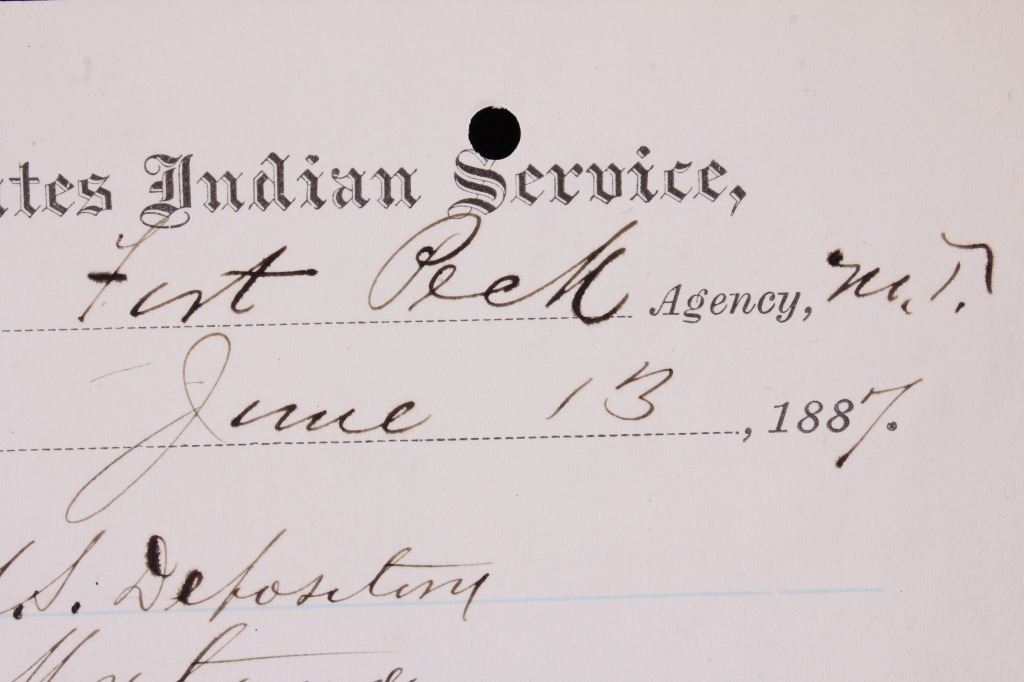 tes Indian Service,
Fort Peck Agency, M.T.
June 13, 1887.
S. Depository